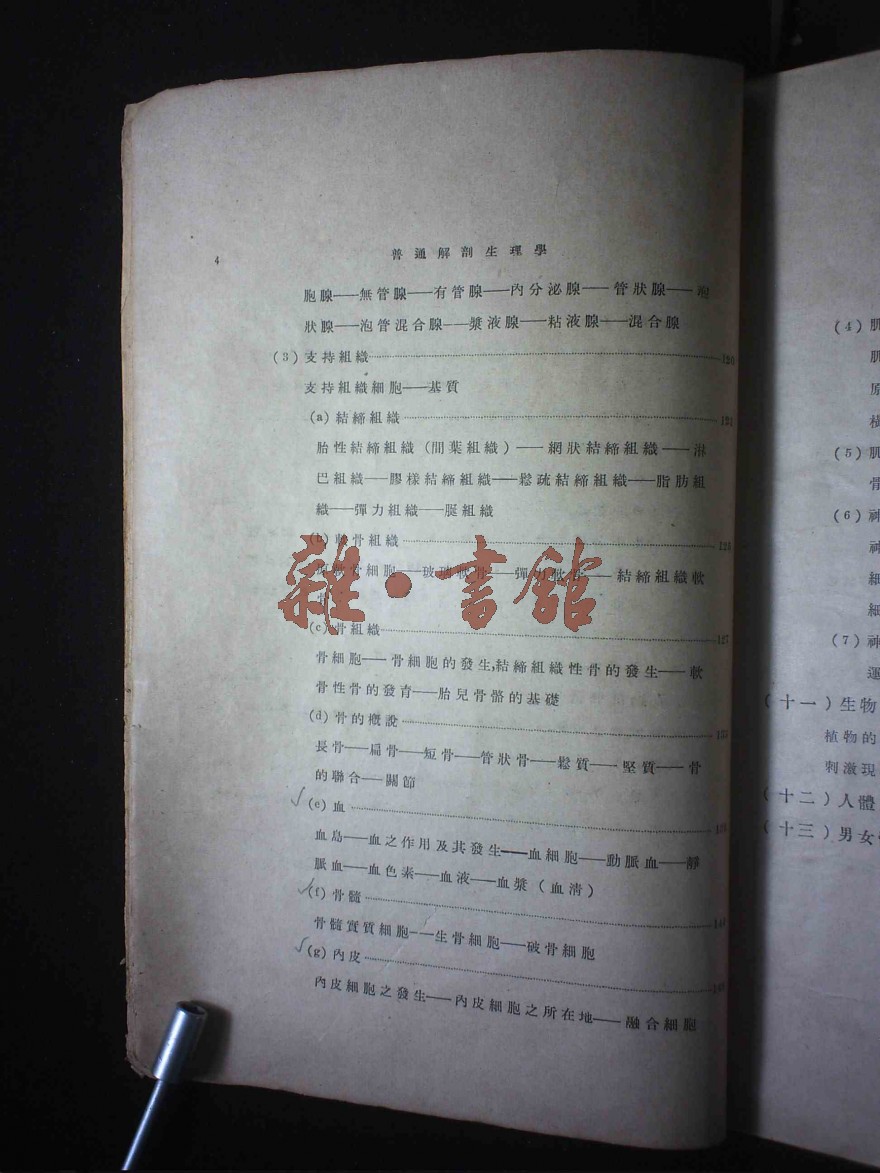 4
普通解剖生理學
胞腺——無管腺——有管腺——內分泌腺——管狀腺——泡
狀腺——泡管混合腺——漿液腺——粘液腺——混合腺
(3)支持組織
支持組織細胞——基質
(a)結締組織
胎性結締組織(間葉組織)——網狀結締組織——淋
巴組織——膠樣結締組織——鬆疏結締組織——脂肪組
織——彈力組織——腱組織
(b)軟骨組織
骨細胞——玻璃軟骨——彈力軟骨——結締組織軟
(c)骨組織 127
骨細胞——骨細胞的發生,結締組織性骨的發生——軟
骨性骨的發育——胎兒骨骼的基礎
(d)骨的概說
長骨——扁骨——短骨——管狀骨——鬆質——堅質——骨
的聯合——關節
(e)血
血島——血之作用及其發生——血細胞——動脈血——靜
脈血——血色素——血液——血漿(血清)
(f)骨髓
骨髓實質細胞——生骨細胞——破骨細胞
(g)內皮
內皮細胞之發生——內皮細胞之所在地——融合細胞
雜·書館
(4)肌
肌
原
(5)肌
骨
(6)神
神
細
細
(7)神
運
(十一)生物
植物的
刺激現
(十二)人體
(十三)男女